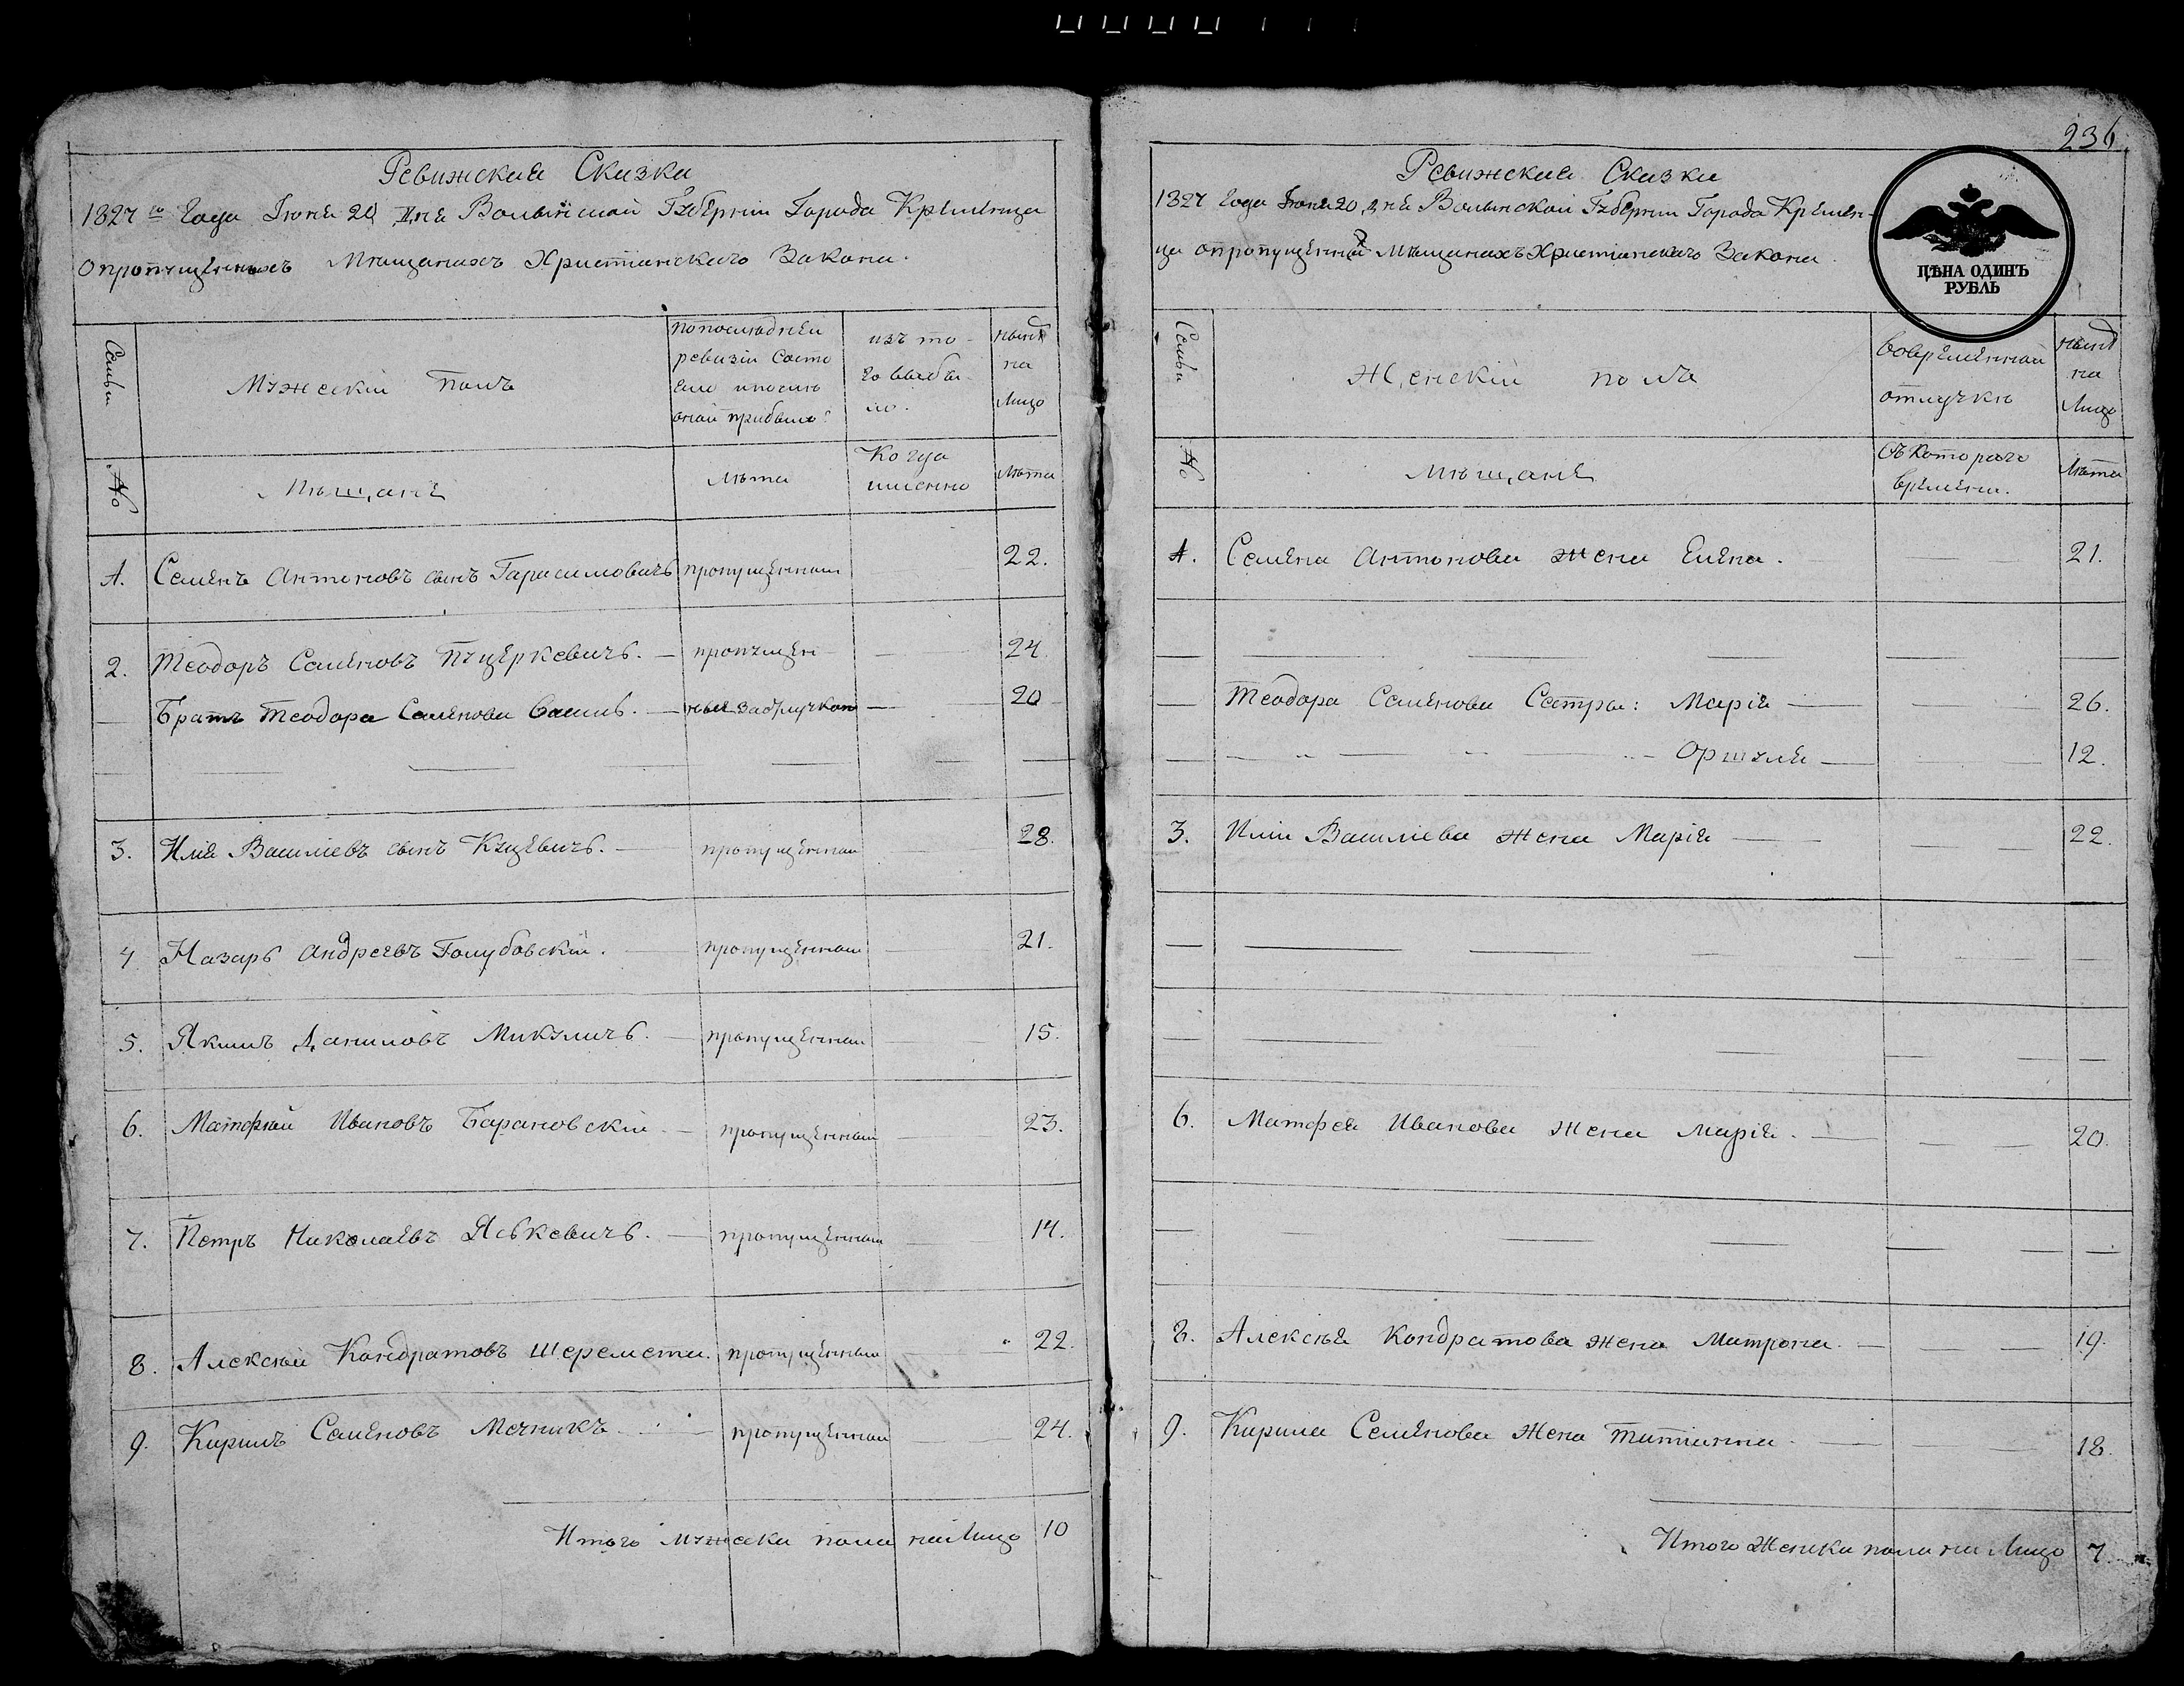 Ревижская Сказка
1827 го Года Іюня 20 Дня Волынской Губерніи Города Кременца
о пропущенныхъ Мѣщанахъ Христианскаго Закона.
Семьи
Мужескій полъ
по последней
ревизіи состо
яло и после
оной прибыло
изъ то-
го выбы
ло.
нынѣ
на
лицо
№
Мѣщане
Лѣта
Когда
имянно
Лѣта
1. Семенъ Антоновъ сынъ Гарасимовичъ пропущенный 22.
2. Теодоръ Семеновъ Пуцеркевичъ. — пропущен — 24
Братъ Теодора Семенова Василь. — 20
3. Илія Василіевъ сынъ Куцевичъ. — пропущенный 28.
4 Назаръ Андреевъ Голубовскій. — пропущенный 21.
5. Якимъ Даниловъ Микуличъ. — пропущенный 15.
6. Матфей Ивановъ Барановскій — пропущенный 23.
7. Петръ Николаевъ Яськевичъ. — пропущенный 14.
8. Алексѣй Кондратовъ Шеремета. пропущенный 22.
9. Кирилъ Семеновъ Мечникъ. — пропущенный 24.
Итого мужеска пола на лицо 10
236
Ревижская Сказка
1827 Года Іюня 20 дня Волынской Губерніи Города Кремен-
ца о пропущенных Мѣщанахъ Христианскаго Закона
ЦѢНА ОДИНЪ
РУБЛЬ
Семьи
Женскій полъ
Во временной
отлучке
нынѣ
на
Лицо
№
Мѣщане
Съ котораго
времени.
Лѣта
1. Семена Антонова жена Елена. 21.
Теодора Семенова Сестры: Марія — 26.
Оршуля — 12.
3. Иліи Василіева жена Марія — 22.
6. Матфея Иванова жена Марія. — 20.
8. Алексѣя Кондратова жена Матрона. — 19.
9. Кирила Семенова жена Татианна. — 18.
Итого женска пола на лицо 7.